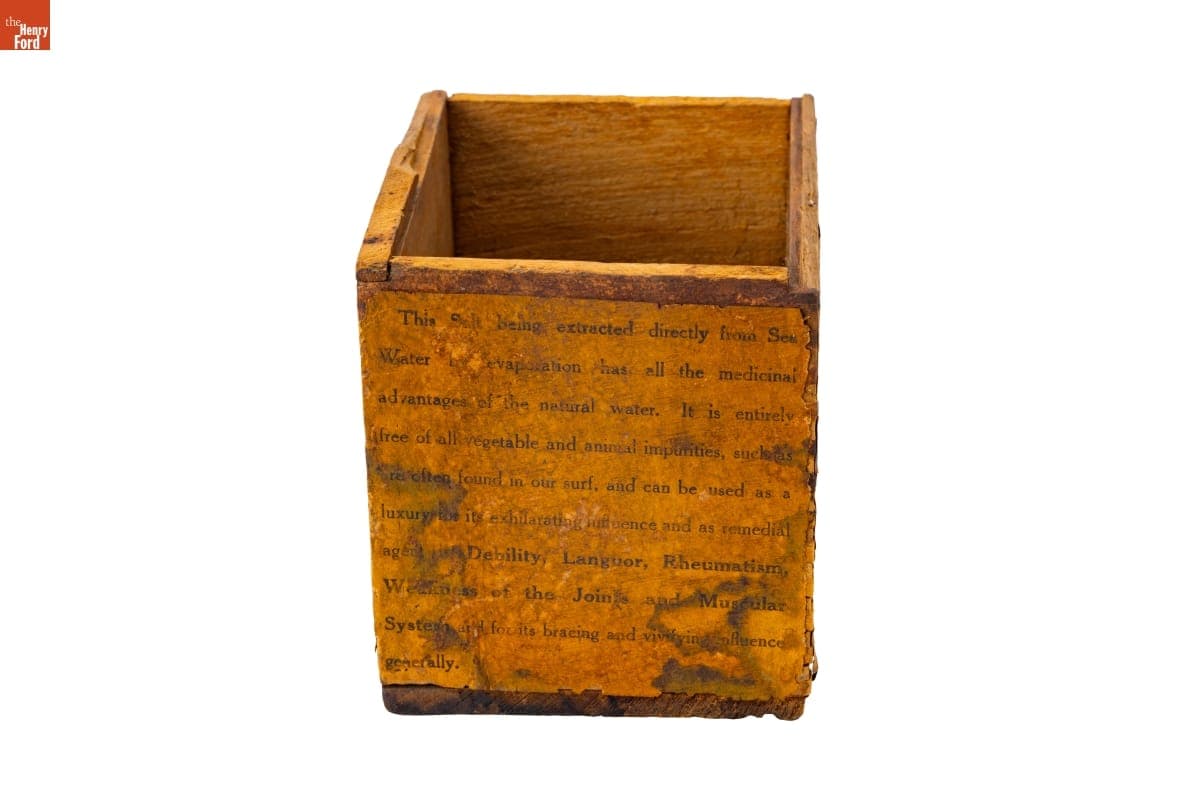 the
Henry
Ford
This Salt being extracted directly from Sea
Water by evaporation has all the medicinal
advantages of the natural water. It is entirely
free of all vegetable and animal impurities, such as
are often found in our surf, and can be used as a
luxury for its exhilarating influence and as remedial
agent in Debility, Languor, Rheumatism,
Weakness of the Joints and Muscular
System and for its bracing and vivifying influence
generally.